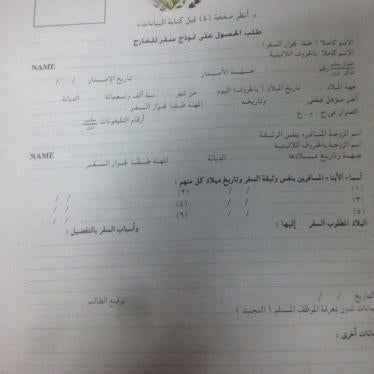 « أنظر صفحة (٤) قبل كتابة البيانات »
طلب الحصول على نموذج سفر للخارج
الاسم كاملا (طبقا لجواز السفر)
الاسم كاملا بالحروف اللاتينية NAME
رقم جهة الأصدار تاريخ الإصدار / /
جهة الميلاد تاريخ الميلاد (بالحروف) اليوم من شهر سنة ألف وتسعمائة الديانة
آخر مؤهل علمى وتاريخه المهنة طبقا لجواز السفر
العنوان فى ج . م . ع أرقام التليفونات
اسم الزوجة المسافرة بنفس الوثيقة
اسم الزوجة بالحروف اللاتينية NAME
جهة وتاريخ ميلادها الديانة المهنة طبقا لجواز السفر
أسماء الأبناء المسافرين بنفس وثيقة السفر وتاريخ ميلاد كل منهم :
(١) / / (٢) / /
(٣) / / (٤) / /
(٥) / / (٦) / /
البلاد المطلوب السفر إليها : وأسباب السفر بالتفصيل :
التاريخ / / توقيع الطالب
بيانات تدون بمعرفة الموظف المستلم (التجنيد)
بيانات أخرى :